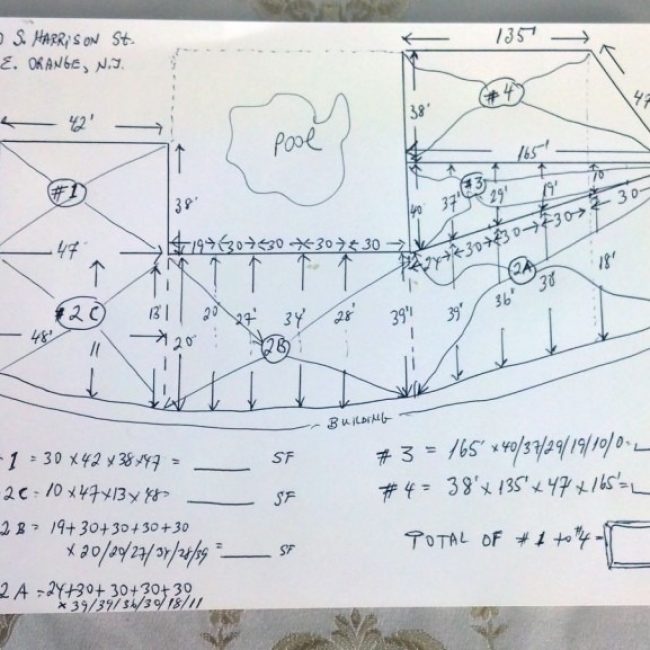 0 S. HARRISON St.
E. ORANGE, N.J.
135'
47
#4
38'
42'
POOL
165'
#1
38'
#3
37'
29'
19'
10
40
30
47
19 30 30 30 30
24 30 30 30
2A
#2C
13'
20'
27'
34'
28'
39'
39'
36'
30'
18'
48'
11
20'
2B
BUILDING
1 = 30 x 42 x 38 x 47 = ____ SF
2C = 10 x 47 x 13 x 48 = ____ SF
2B = 19+30+30+30+30
x 20/20/27/34/28/39 = ____ SF
2A = 24+30+30+30+30
x 39/39/36/30/18/11
#3 = 165' x 40/37/29/19/10/0 =
#4 = 38' x 135' x 47' x 165' =
TOTAL OF #1 to #4 =